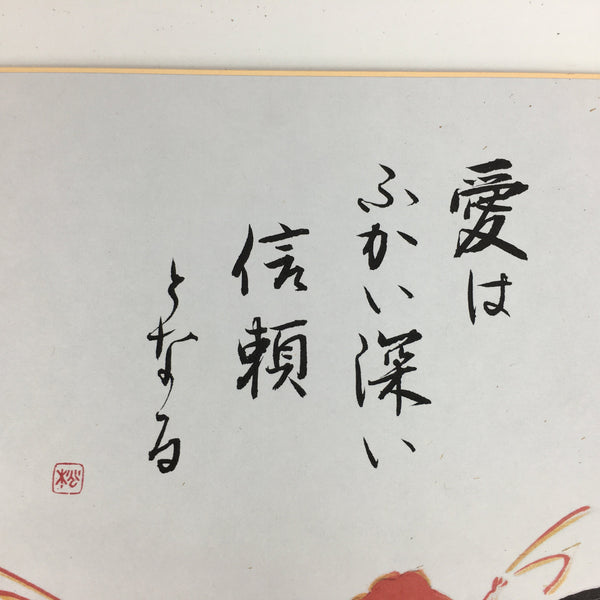 愛は
ふかい深い
信頼
となる
松